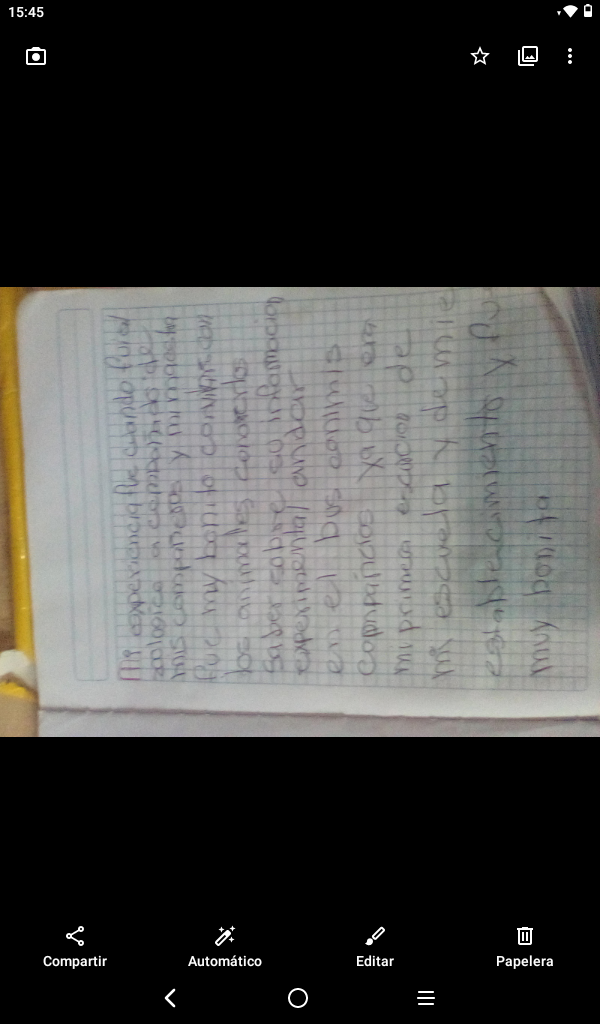 15:45
Mi experiencia fue cuando fui al
zoologico acompañado de
mis compañeros y mi maestra
fue muy bonito combibir con
los animales conoserlos
Saber sobre su informacion
experimental andar
en el bus con mis
compañeros ya que era
mi primera escurcion de
mi escuela y de mi
establecimiento y fue
muy bonita
Compartir
Automático
Editar
Papelera